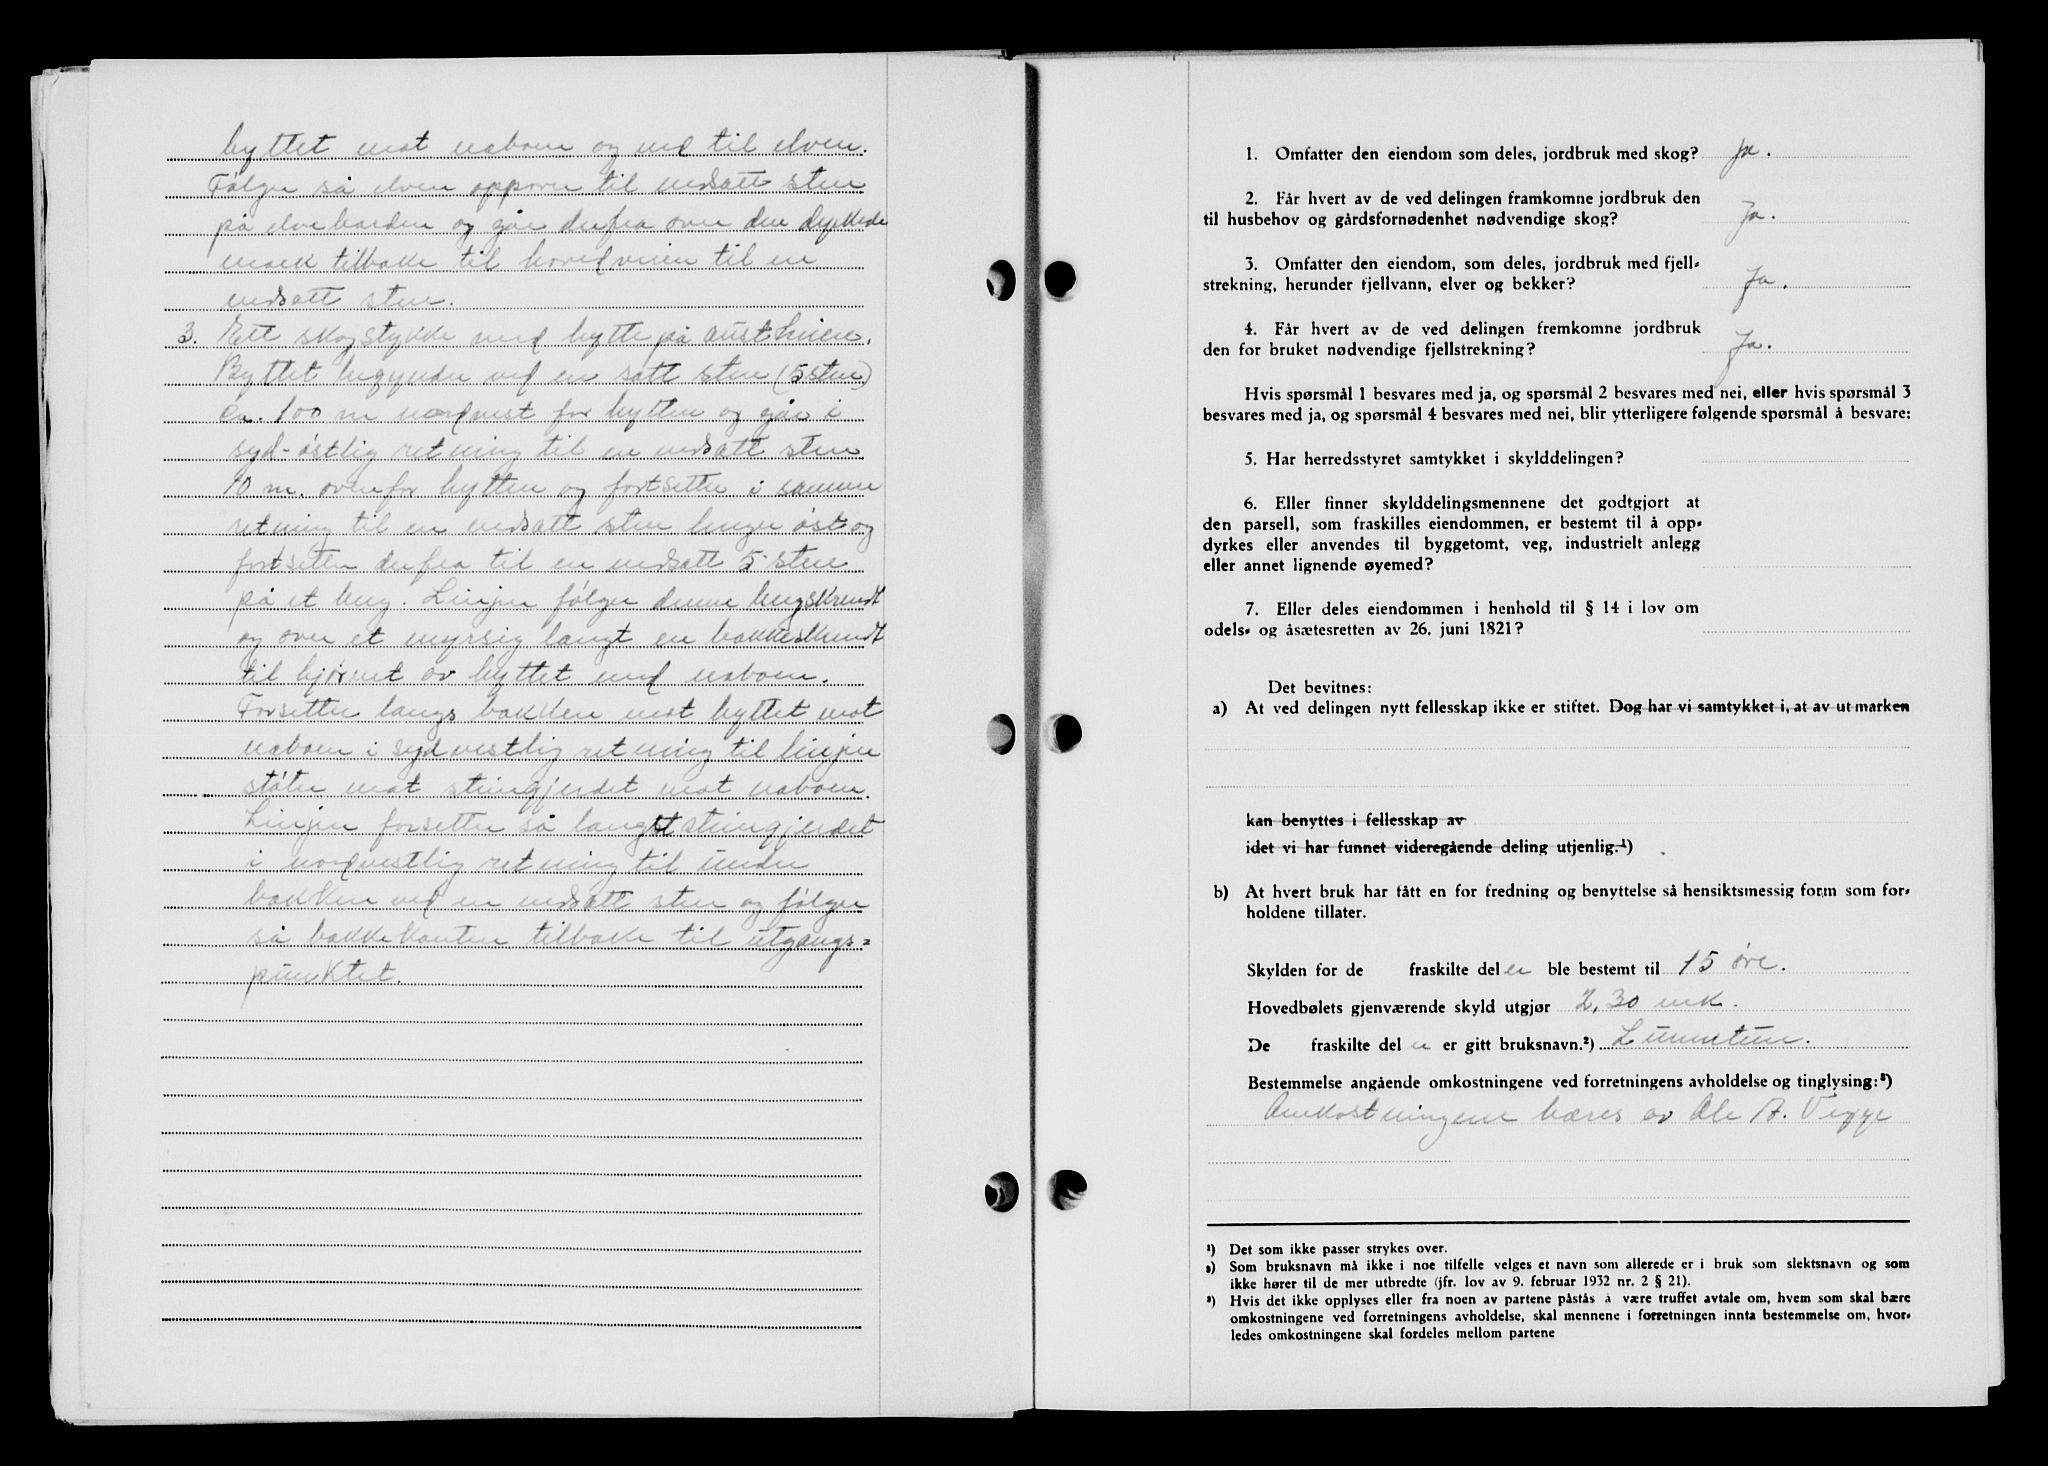 byttet mot naboen og ned til elven.
Følger så elven oppover til nedsatt sten
på elvebarden og går derfra over den dyrkede
mark tilbake til hovedveien til en
nedsatt sten.
3. Ett skogstykke med hytte på austlinien.
Byttet begynder ved en satt sten (5 sten)
ca. 100 m nordvest for hytten og går i
syd-østlig retning til en nedsatt sten
10 m. ovenfor hytten og fortsetter i samme
retning til en nedsatt sten lenger øst og
fortsetter derfra til en nedsatt 5-sten
på et berg. Linjen følger denne bergskrendt
og over et myrsig langt en bakkeskrendt
til hjørnet av byttet med naboen.
Forsetter langs bakken mot byttet mot
naboen i sydvestlig retning til linjen
støter mot steingjerdet mot naboen.
Linjen forsetter så langst steingjerdet
i nordvestlig retning til under
bakken ved en nedsatt sten og følger
så bakkekanten tilbake til utgangs=
punktet.
1. Omfatter den eiendom som deles, jordbruk med skog? Ja.
2. Får hvert av de ved delingen framkomne jordbruk den
til husbehov og gårdsfornødenhet nødvendige skog? Ja.
3. Omfatter den eiendom, som deles, jordbruk med fjell-
strekning, herunder fjellvann, elver og bekker? Ja.
4. Får hvert av de ved delingen fremkomne jordbruk
den for bruket nødvendige fjellstrekning? Ja.
Hvis spørsmål 1 besvares med ja, og spørsmål 2 besvares med nei, eller hvis spørsmål 3
besvares med ja, og spørsmål 4 besvares med nei, blir ytterligere følgende spørsmål å besvare:
5. Har herredsstyret samtykket i skylddelingen?
6. Eller finner skylddelingsmennene det godtgjort at
den parsell, som fraskilles eiendommen, er bestemt til å opp-
dyrkes eller anvendes til byggetomt, veg, industrielt anlegg
eller annet lignende øyemed?
7. Eller deles eiendommen i henhold til § 14 i lov om
odels- og åsætesretten av 26. juni 1821?
Det bevitnes:
a) At ved delingen nytt fellesskap ikke er stiftet. Dog har vi samtykket i, at av utmarken
kan benyttes i fellesskap av
idet vi har funnet videregående deling utjenlig.¹)
b) At hvert bruk har fått en for fredning og benyttelse så hensiktsmessig form som for-
holdene tillater.
Skylden for de fraskilte del er ble bestemt til 15 øre.
Hovedbølets gjenværende skyld utgjør 2,30 mk.
De fraskilte del er er gitt bruksnavn.²) Lunnstun.
Bestemmelse angående omkostningene ved forretningens avholdelse og tinglysing:³)
Omkostningene bæres av Ole A. Vigge
¹) Det som ikke passer strykes over.
²) Som bruksnavn må ikke i noe tilfelle velges et navn som allerede er i bruk som slektsnavn og som
ikke hører til de mer utbredte (jfr. lov av 9. februar 1932 nr. 2 § 21).
³) Hvis det ikke opplyses eller fra noen av partene påstås å være truffet avtale om, hvem som skal bære
omkostningene ved forretningens avholdelse, skal mennene i forretningen innta bestemmelse om, hvor-
ledes omkostningene skal fordeles mellom partene